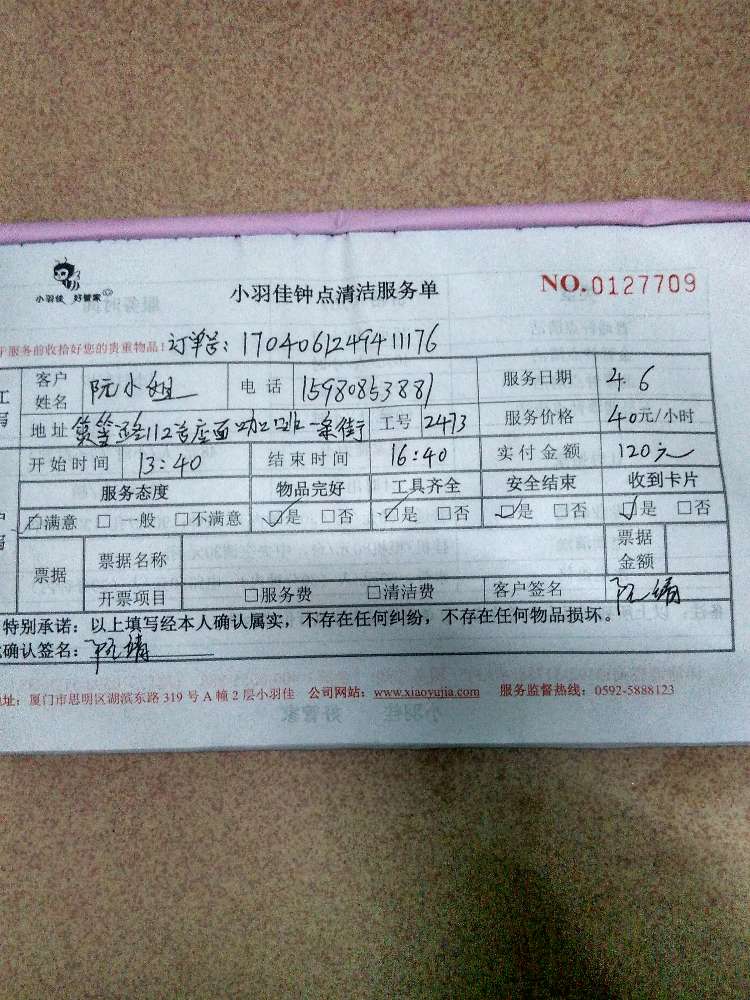 小羽佳 好管家
小羽佳钟点清洁服务单
NO.0127709
于服务前收拾好您的贵重物品!
订单号:1704061249411176
客户姓名 阮小姐 电话 15980853881 服务日期 4.6
地址 路112号店面 一条街 工号 2473 服务价格 40元/小时
开始时间 13:40 结束时间 16:40 实付金额 120元
服务态度 物品完好 工具齐全 安全结束 收到卡片
☑满意 □一般 □不满意 ☑是 □否 ☑是 □否 ☑是 □否 ☑是 □否
票据 票据名称 票据金额
开票项目 □服务费 □清洁费 客户签名 阮婧
特别承诺:以上填写经本人确认属实,不存在任何纠纷,不存在任何物品损坏。
确认签名:阮婧
地址:厦门市思明区湖滨东路 319 号 A 幢 2 层小羽佳 公司网站:www.xiaoyujia.com 服务监督热线:0592-5888123